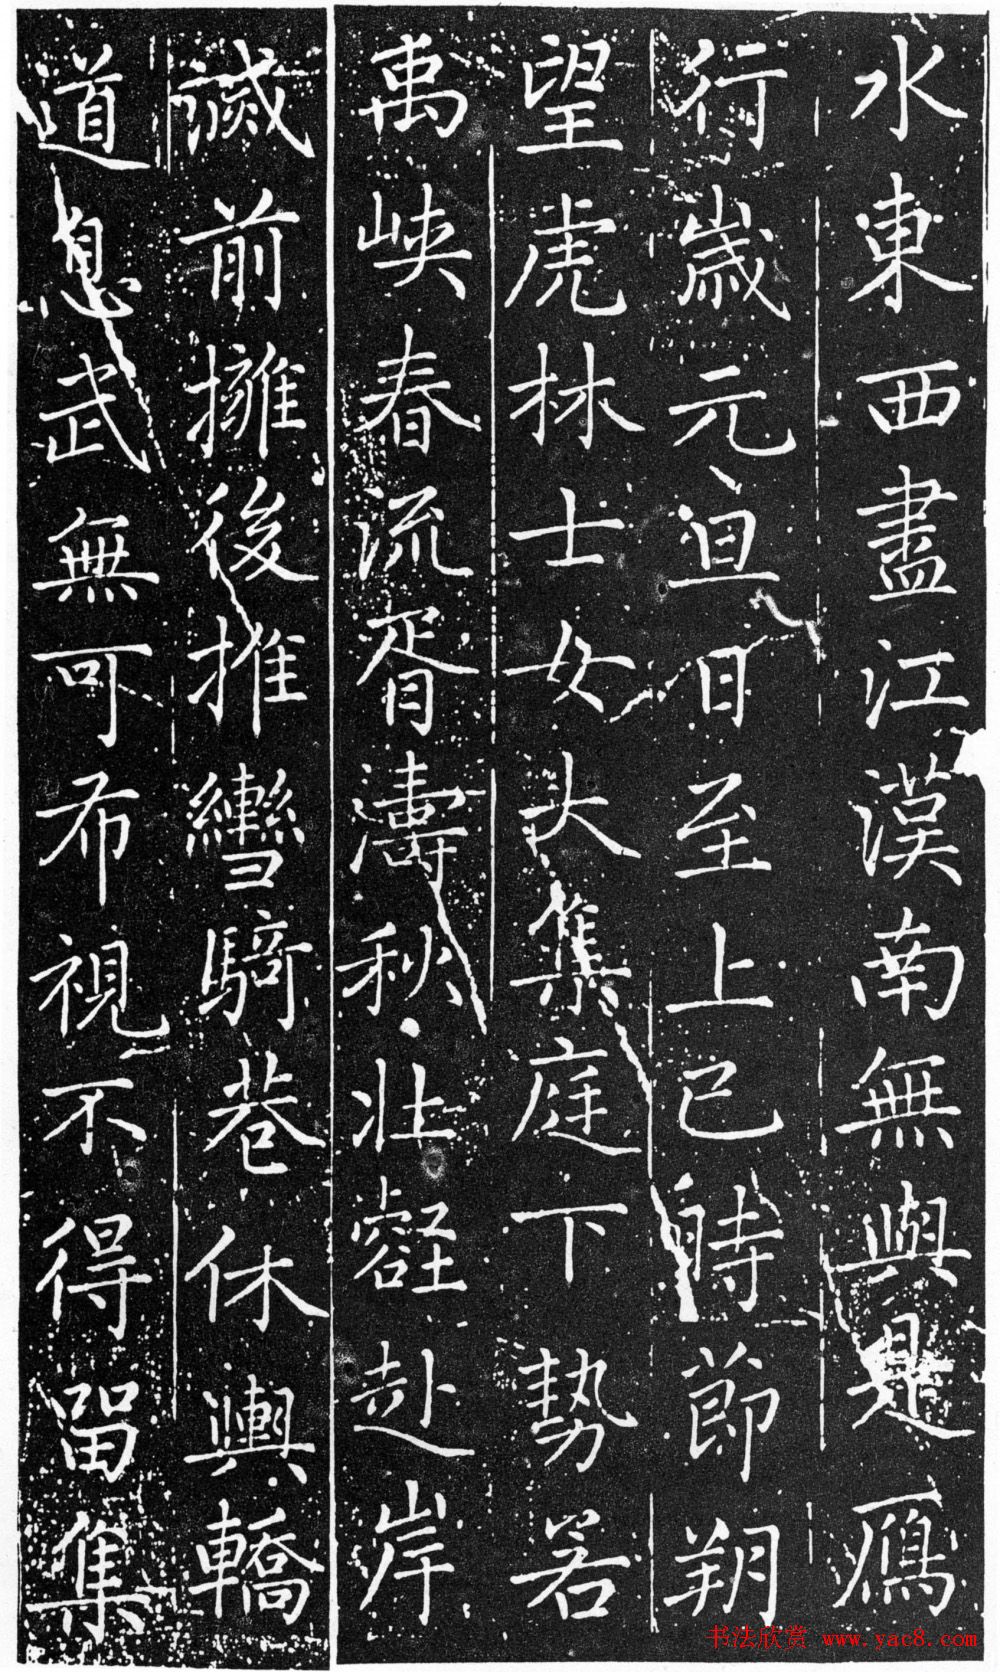 水東西盡江漢南無與是鴈
行歲元亘日至上巳時節朔
望虎林士女大集庭下勢若
禹峽春流胥濤秋壯壑赴岸
滅前擁後推轡騎巷休輿轎
道息武無可布視不得留集
书法欣赏 www.yac8.com